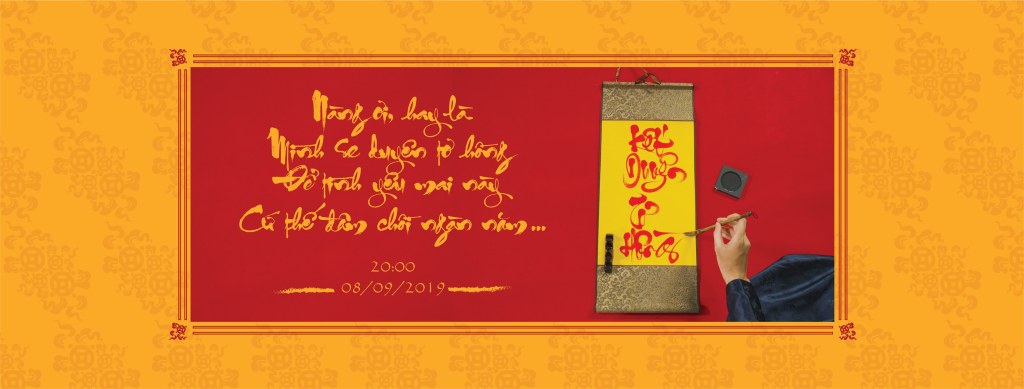 Nàng ơi, hay là
Mình se duyên tơ hồng
Để tình yêu mai này
Cứ thế đâm chồi ngàn năm...
20:00
08/09/2019
Kết
Duyên
Tơ
Hồng